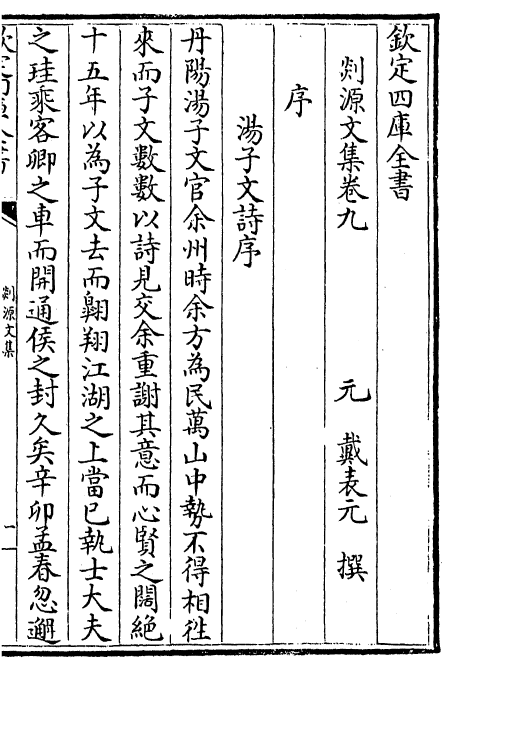 欽定四庫全書
剡源文集卷九　元　戴表元　撰
序
湯子文詩序
丹陽湯子文官余州時余方為民萬山中勢不得相徃
來而子文數數以詩見交余重謝其意而心賢之闊絶
十五年以為子文去而翺翔江湖之上當已執士大夫
之珪乘客卿之車而開通侯之封久矣辛卯孟春忽邂
剡源文集